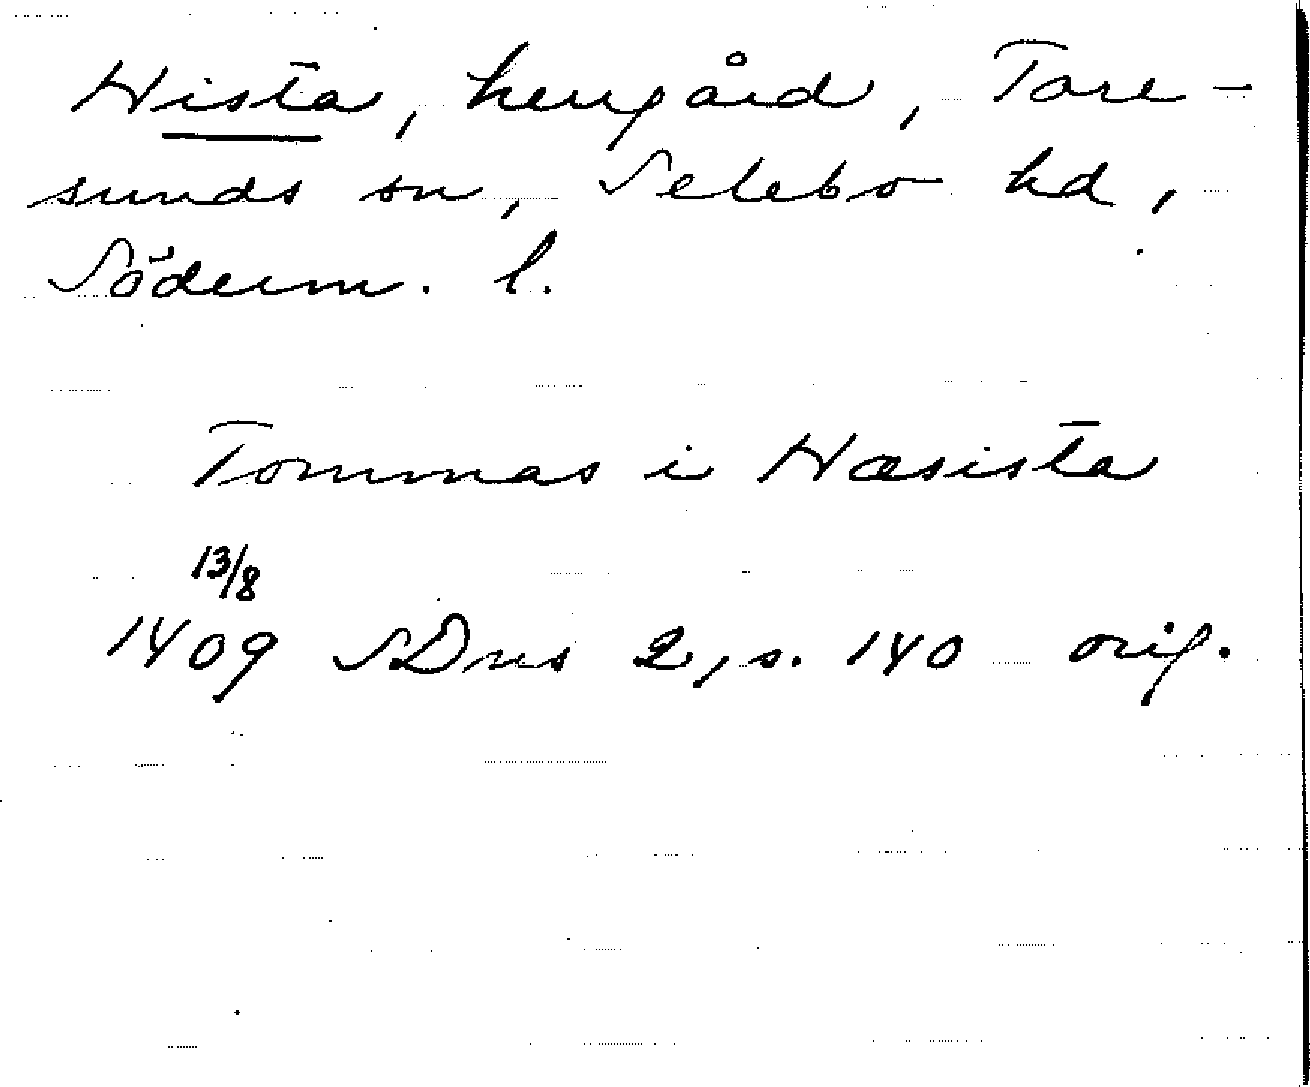 Hista, herrgård, Tore-
sunds sn, Selebo hd,
Söderm. l.
Tommas i Hæsista
13/8
1409 SDns 2, s. 140 orig.